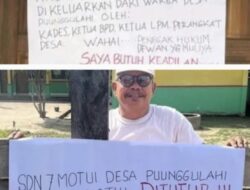 DI KELUARKAN DARI WARGA DESA
PUUNGGULAHI OLEH:
KADES, KETUA BPD, KETUA LPM, PERANGKAT
DESA. WAHAI PENEGAK HUKUM
DEWAN YG MULIYA
SAYA BUTUH KEADILAN
SDN 7 MOTUI DESA PUUNGGULAHI
DITUTUP !!!